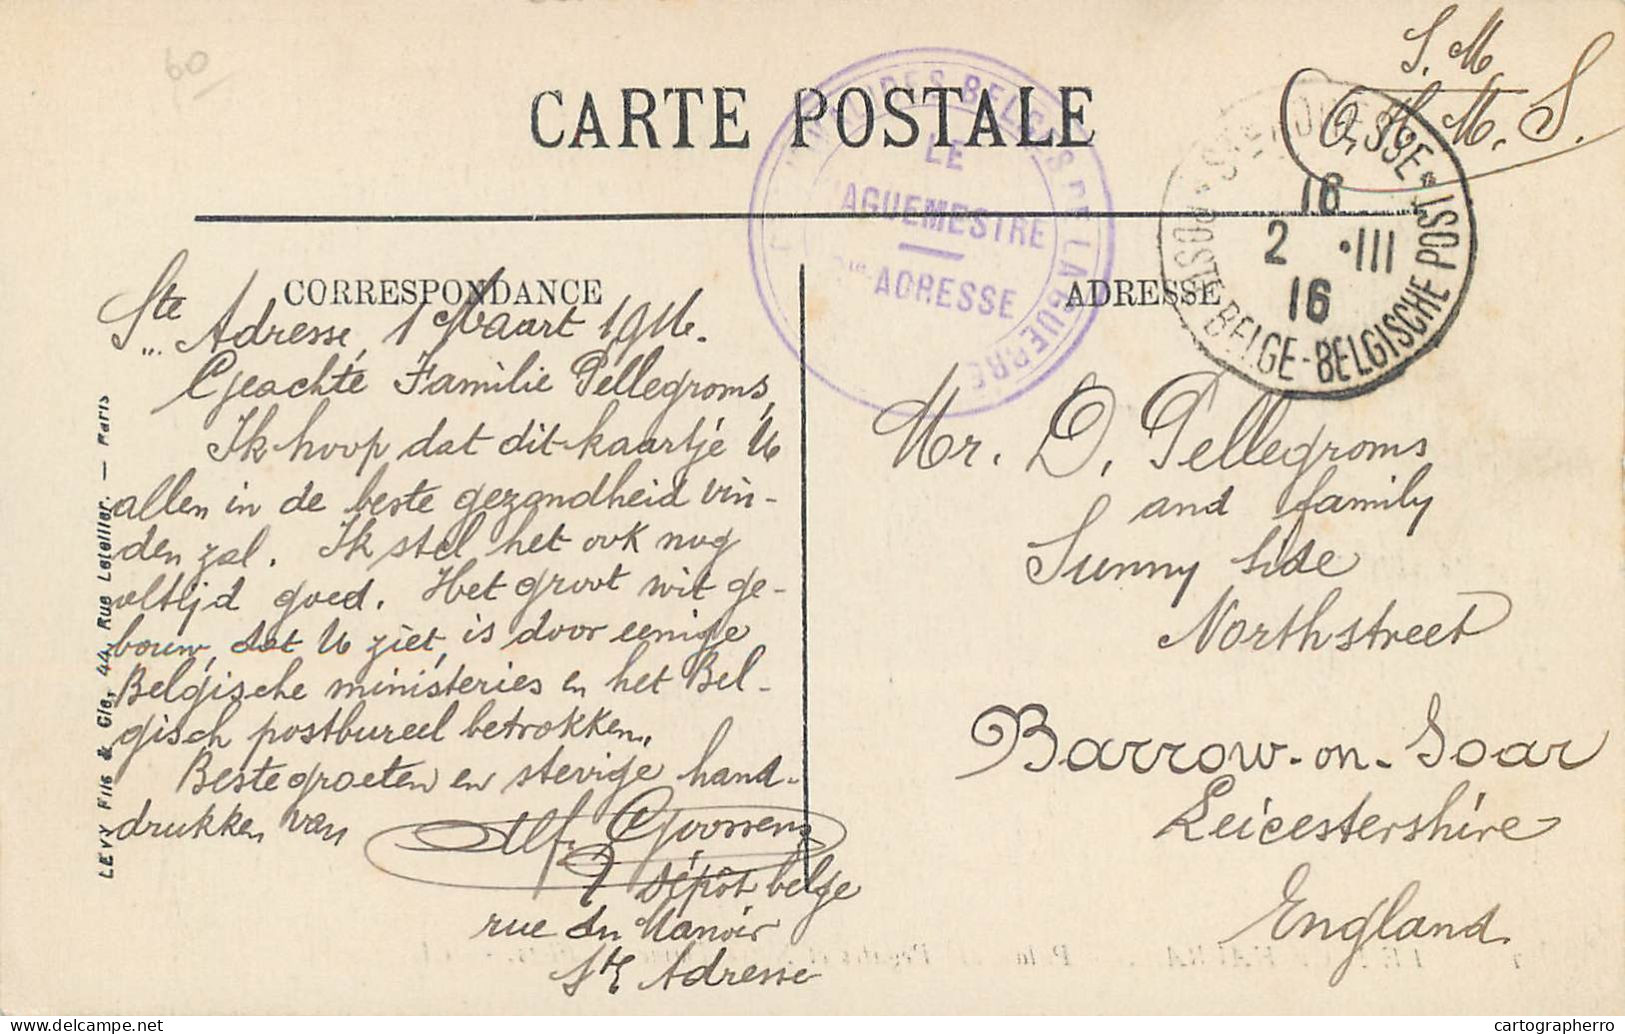 60
CARTE POSTALE
S. M.
S. M.
BELGES DE LA GUERRE
LE
VAGUEMESTRE
ADRESSE
STE ADRESSE
POSTE BELGE-BELGISCHE POST
16
2 •III
16
CORRESPONDANCE
ADRESSE
Ste Adresse, 1 Maart 1916.
Geachte Familie Pellegroms,
Ik hoop dat dit kaartje U
allen in de beste gezondheid vin-
den zal. Ik stel het ook nog
altijd goed. Het groot wit ge-
bouw, dat U ziet, is door eenige
Belgische ministeries en het Bel-
gisch postbureel betrokken.
Beste groeten en stevige hand-
drukken van
Alf. Goossens
Dépôt belge
rue du Manoir
Ste Adresse
Mr. D. Pellegroms
and family
Sunny Side
Northstreet
Barrow-on-Soar
Leicestershire
England.
LEVY Fils & Cie, 44, Rue Letellier. — Paris
www.delcampe.net
cartographerro